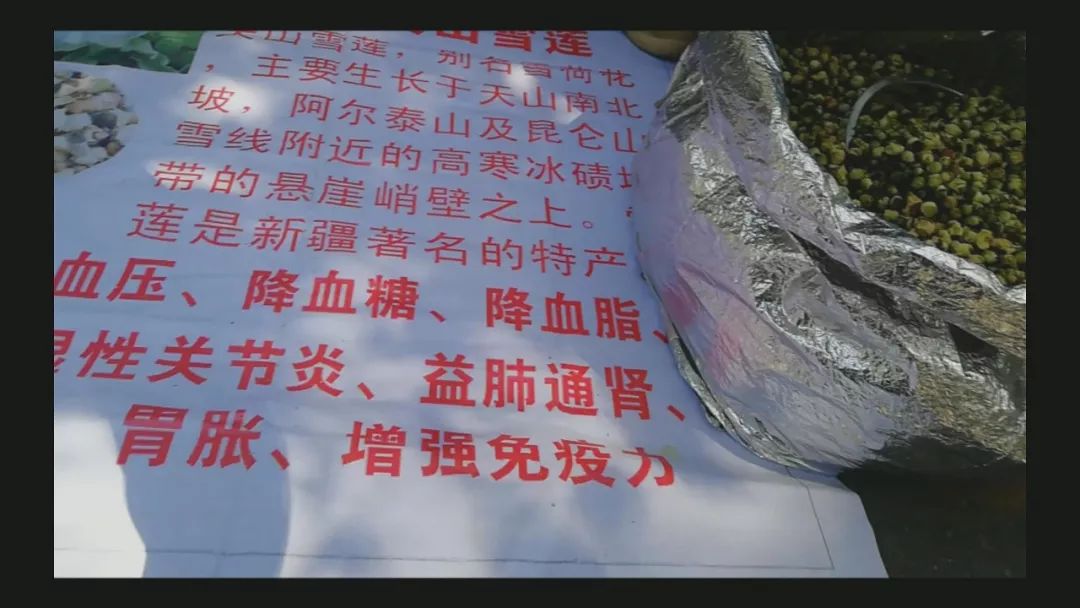 山雪莲
山雪莲，别名雪荷花
，主要生长于天山南北
坡，阿尔泰山及昆仑山
雪线附近的高寒冰碛
带的悬崖峭壁之上。
莲是新疆著名的特产
血压、降血糖、降血脂、
湿性关节炎、益肺通肾、
胃胀、增强免疫力